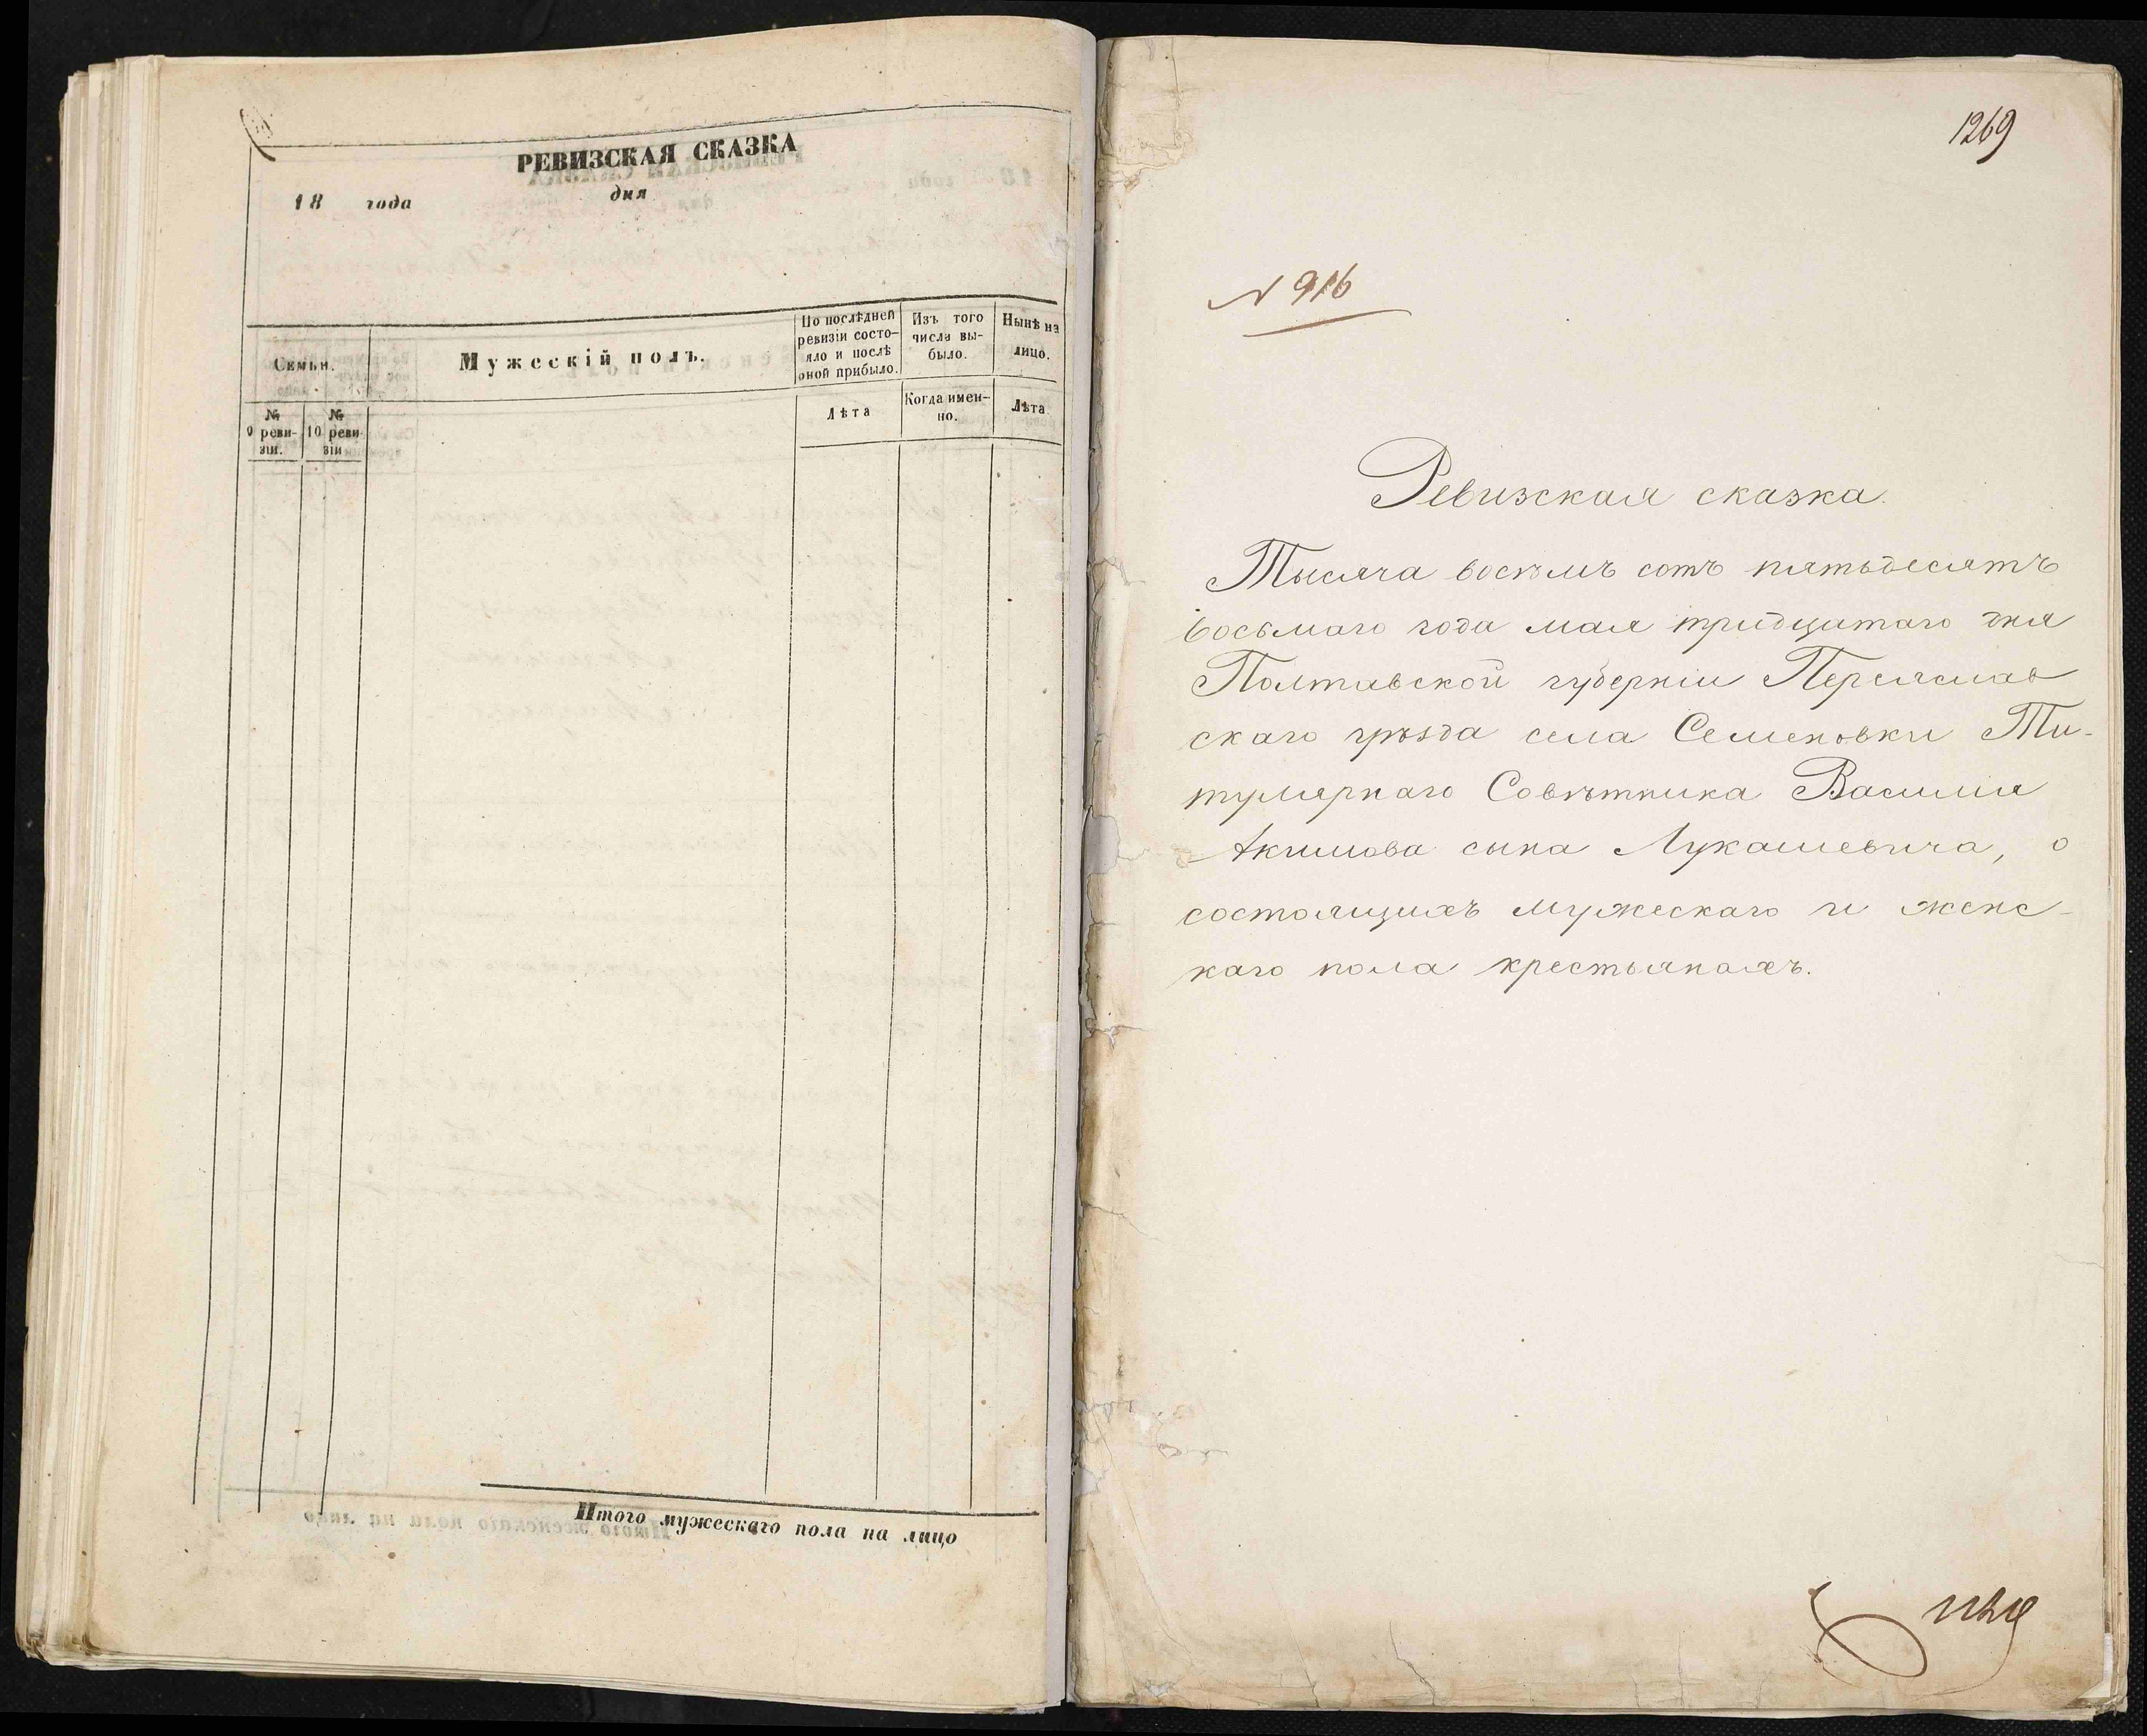 РЕВИЗСКАЯ СКАЗКА
18 года дня
Семьи.
Мужескій полъ.
По послѣдней
ревизіи состо-
яло и послѣ
оной прибыло.
Изъ того
числа вы-
было.
Нынѣ на
лицо.
№
9 реви-
зіи.
№
10 реви-
зіи
Лѣта
Когда имен-
но.
Лѣта
Итого мужескаго пола на лицо
1269
N 916
Ревизская сказка.
Тысяча восѣмъ сотъ пятьдесятъ
восьмаго года мая тридцатаго дня
Полтавской губерніи Переяслав
скаго уѣзда села Семеновки Ти-
тулярнаго Совѣтника Василия
Акимова сына Лукашевича, о
состоящихъ мужескаго и женс-
каго пола крестьянахъ.